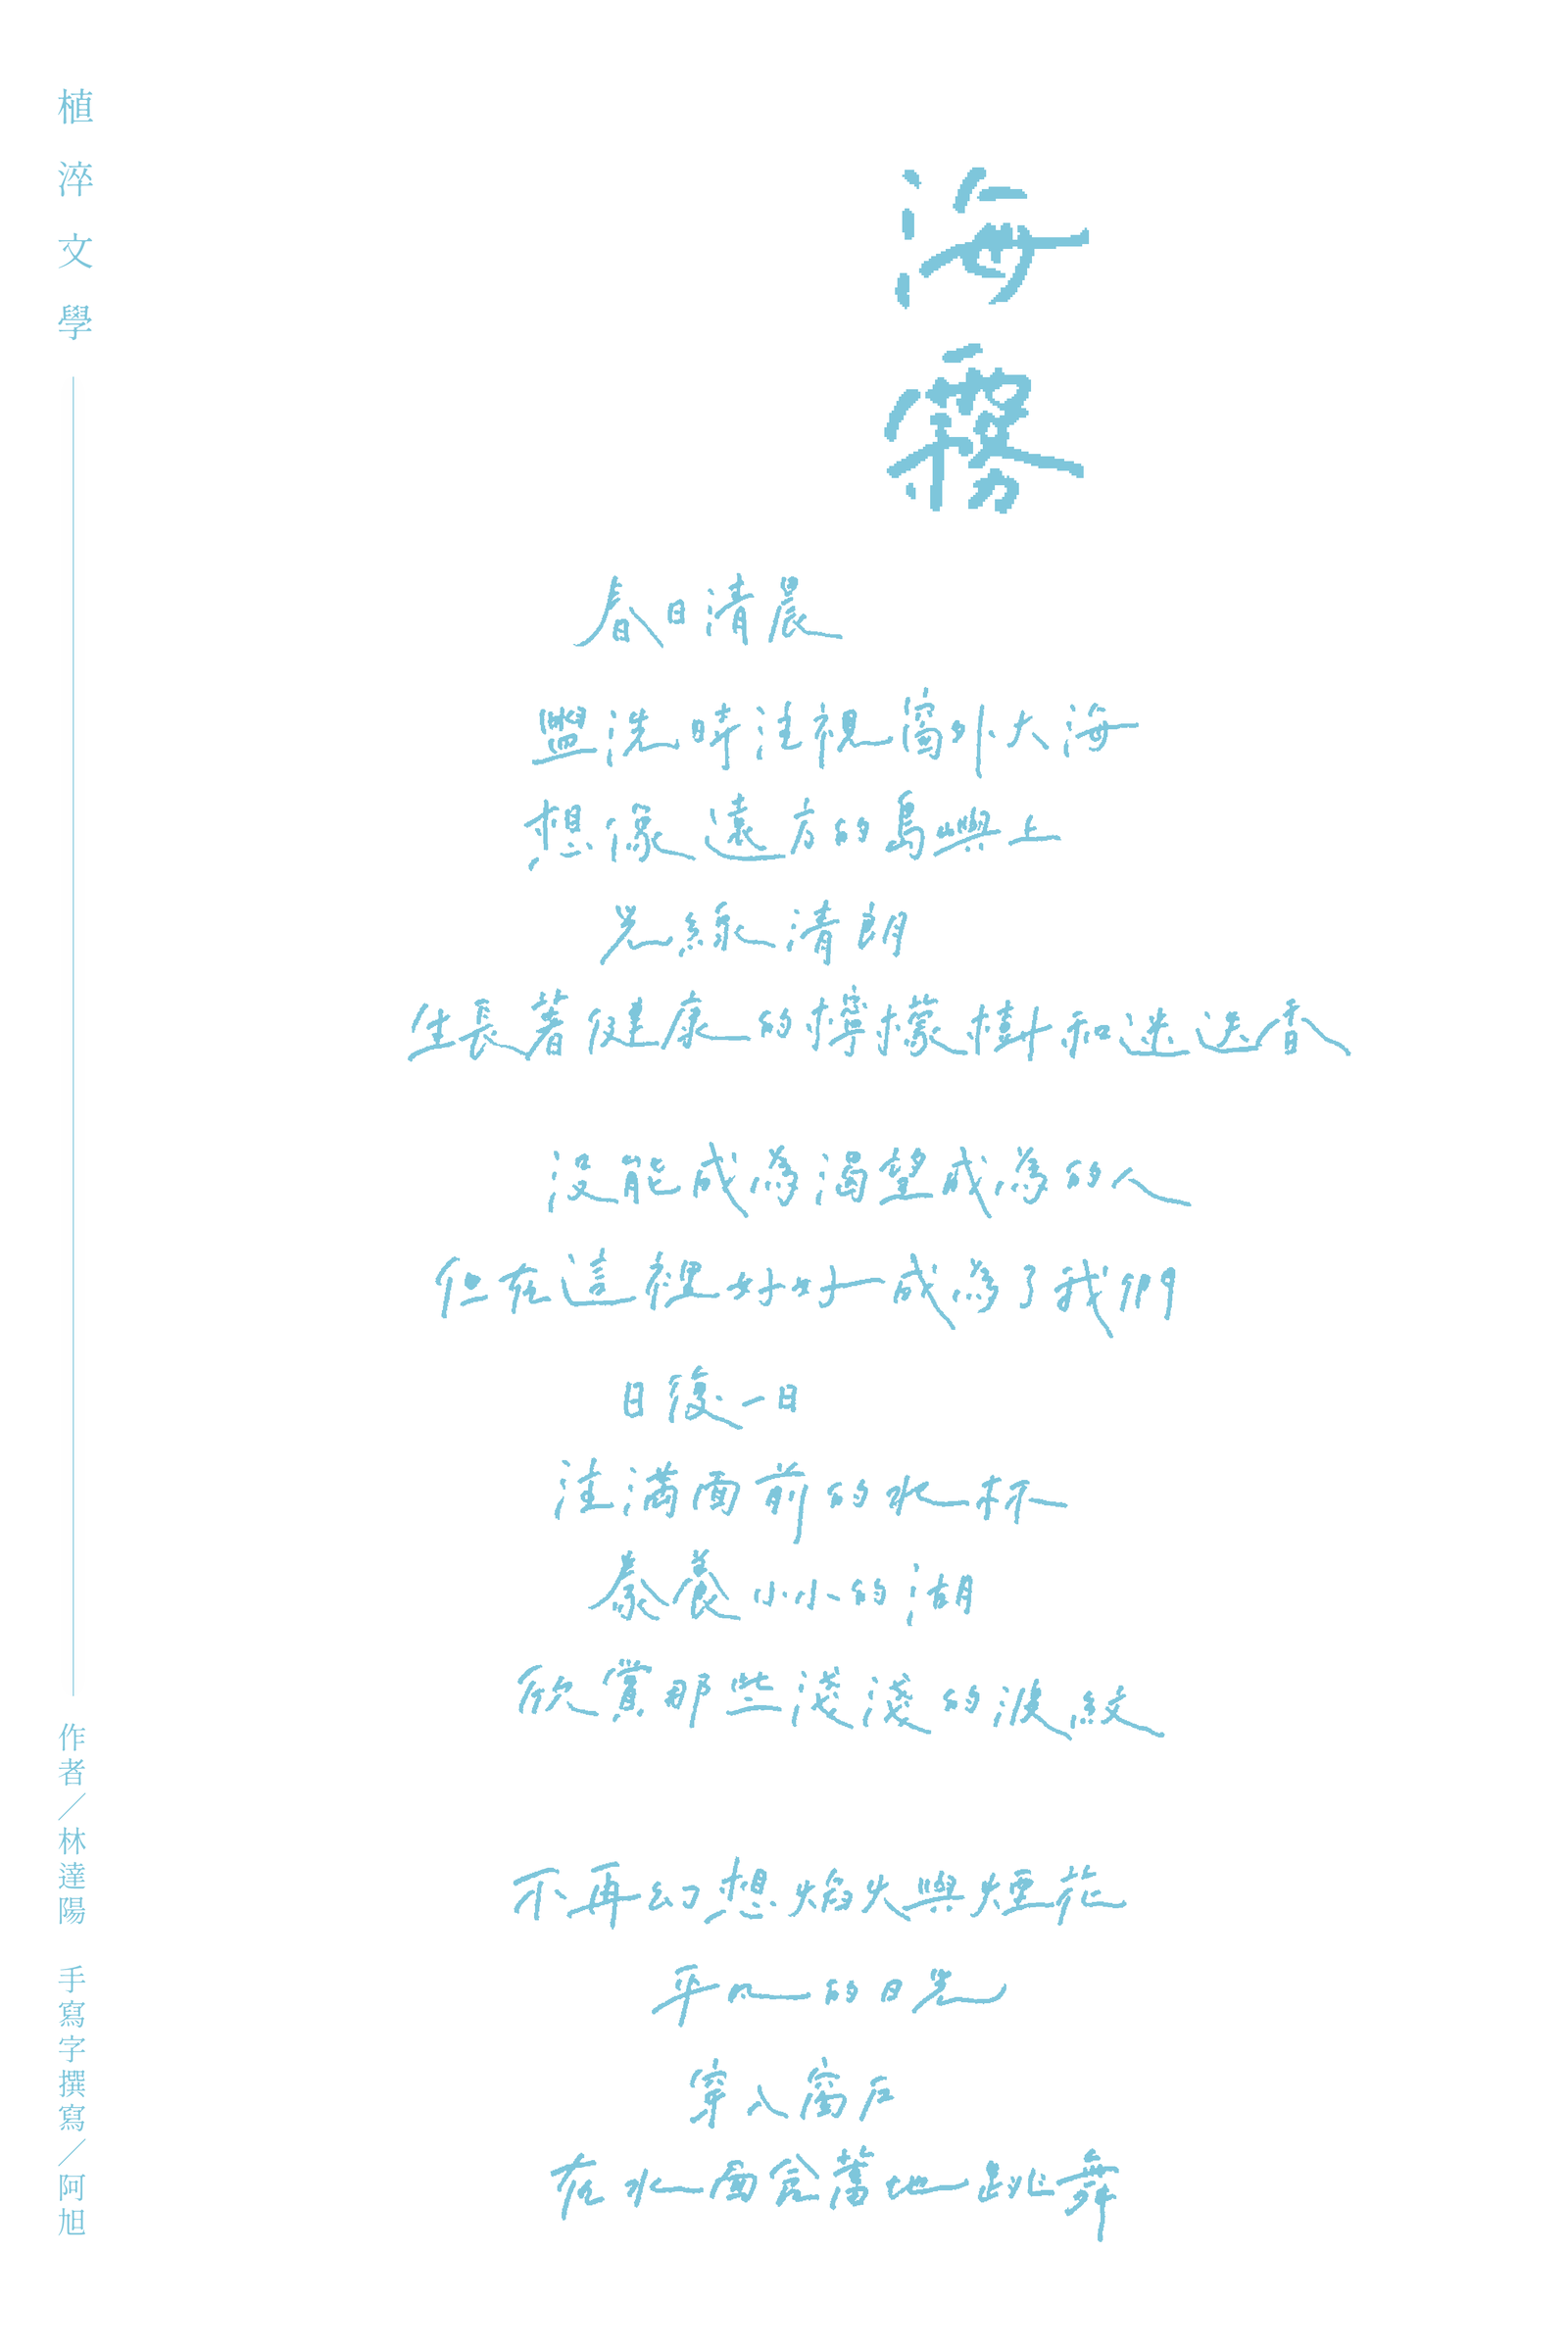 植淬文學
海霧
春日清晨
盥洗時注視窗外大海
想像遠方的島嶼上
光線清朗
生長著健康的檸檬樹和迷迭香
沒能成為渴望成為的人
但在這裡好好成為了我們
日復一日
注滿面前的水杯
豢養小小的湖
欣賞那些淺淺的波紋
不再幻想焰火與煙花
平凡的日光
穿入窗戶
在水面含蓄地跳舞
作者／林達陽　手寫字撰寫／阿旭